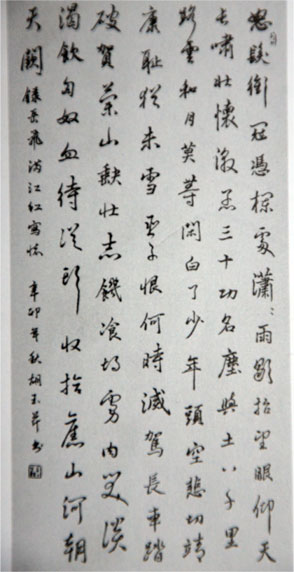 怒髮衝冠憑欄處瀟々雨歇抬望眼仰天
長嘯壮懷激烈三十功名塵與土八千里
路雲和月莫等閑白了少年頭空悲切靖
康耻猶未雪臣子恨何時滅駕長車踏
破賀蘭山缺壮志饑飡胡虜肉笑談
渴飲匈奴血待從頭收拾舊山河朝
天闕 錄岳飛滿江紅寫懷 辛卯年秋胡玉芹書